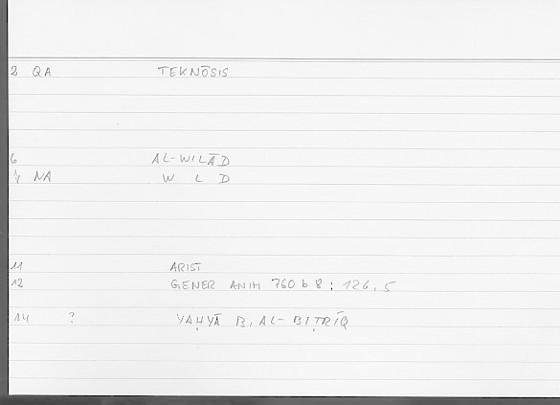 2 QA TEKNŌSIS
6 AL-WILĀD
7 NA W L D
11 ARIST
12 GENER ANIM 760 b 8 : 126,5
14 ? YAḤYĀ B. AL-BIṬRĪQ